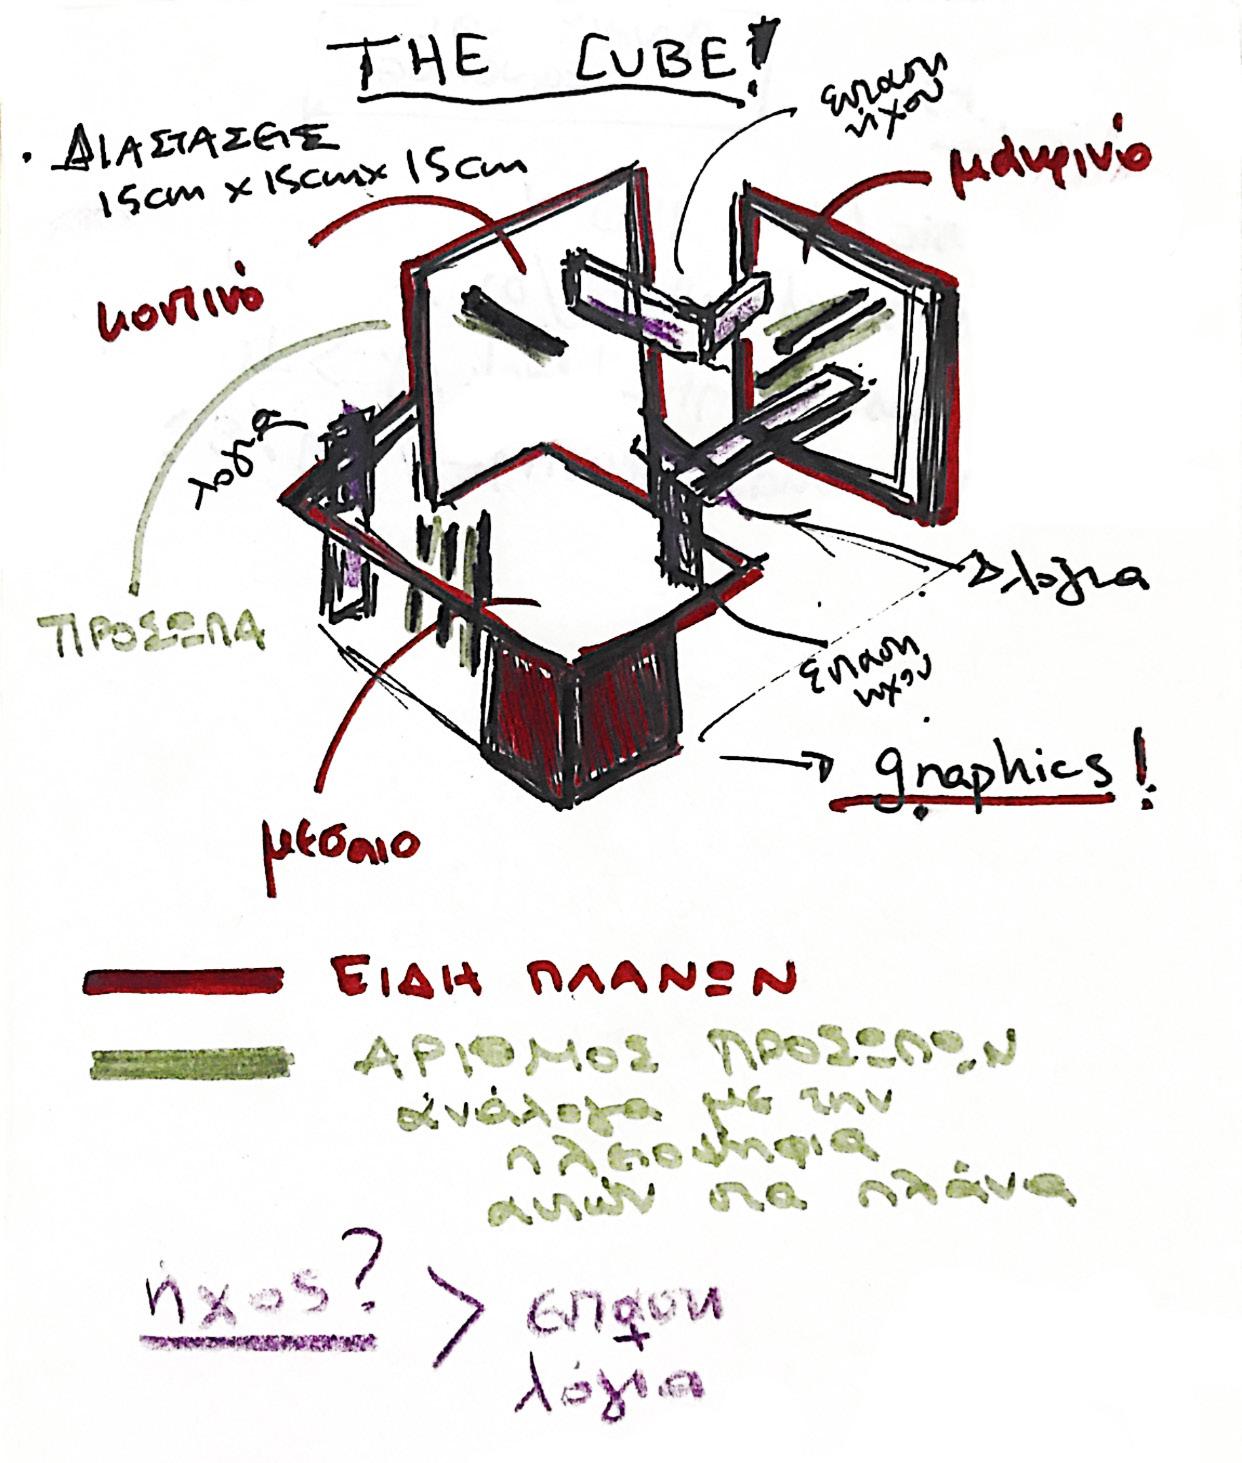 THE CUBE!
· ΔΙΑΣΤΑΣΕΙΣ
15cm x 15cm x 15cm
ενταση
ήχου
μακρινό
κοντινό
λογια
ΠΡΟΣΩΠΑ
λογια
ενταση
ηχου
graphics!
μεσαιο
ΕΙΔΗ ΠΛΑΝΩΝ
ΑΡΙΘΜΟΣ ΠΡΟΣΩΠΩΝ
ανάλογα με την
πλειοψηφια
αυτών στα πλάνα
ήχος? > ενταση
λόγια